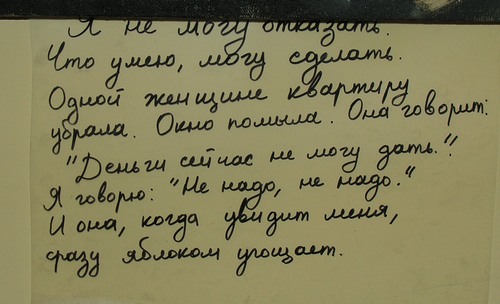 Я не могу отказать.
Что умею, могу сделать.
Одной женщине квартиру
убрала. Окно помыла. Она говорит:
"Деньги сейчас не могу дать."
Я говорю: "Не надо, не надо."
И она, когда увидит меня,
сразу яблоком угощает.